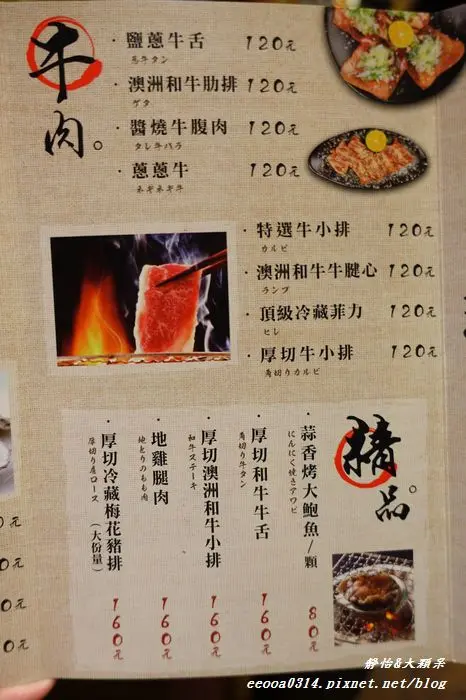 牛肉。
・鹽蔥牛舌 120元
葱牛タン
・澳洲和牛肋排 120元
ゲタ
・醬燒牛腹肉 120元
タレ牛バラ
・蔥蔥牛 120元
ネギネギ牛
・特選牛小排 120元
カルビ
・澳洲和牛牛腱心 120元
ランプ
・頂級冷藏菲力 120元
ヒレ
・厚切牛小排 120元
角切りカルビ
精品。
・蒜香烤大鮑魚/顆 80元
にんにく焼きアワビ
・厚切和牛牛舌 160元
角切り牛タン
・厚切澳洲和牛小排 160元
和牛ステーキ
・地雞腿肉 160元
地とりのもも肉
・厚切冷藏梅花豬排(大份量) 160元
厚切り肩ロース
0元
0元
0元
0元
靜怡&大顆呆
eeooa0314.pixnet.net/blog